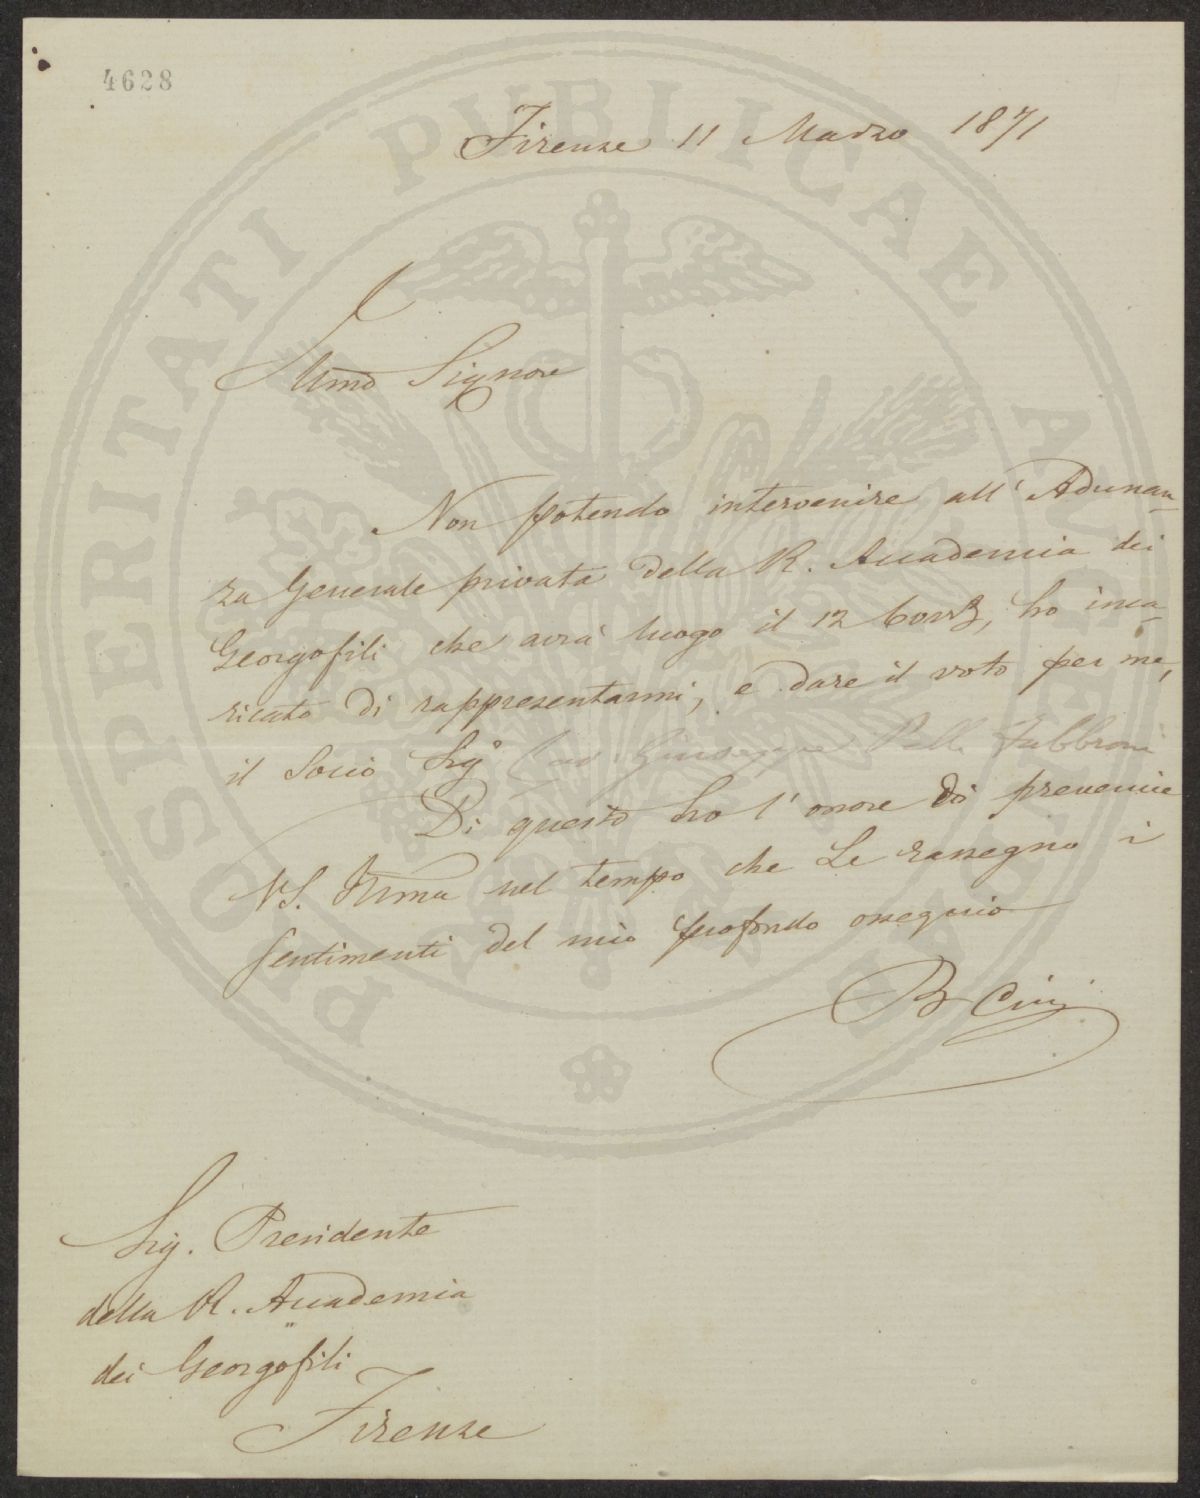 4628
Firenze 11 Marzo 1871
Illmo Signore
Non potendo intervenire all' Adunan-
za Generale privata della R. Accademia dei
Georgofili che avrà luogo il 12 Corr, ho inca-
ricato di rappresentarmi, e dare il voto per me,
il Socio Sigr Cav. Giuseppe Pelli Fabbroni
Di questo ho l' onore di prevenire
VS. Illma nel tempo che Le rassegno i
sentimenti del mio profondo ossequio
B Cini
Sig. Presidente
della R. Accademia
dei Georgofili
Firenze
PROSPERITATI PUBLICAE AUGENDAE